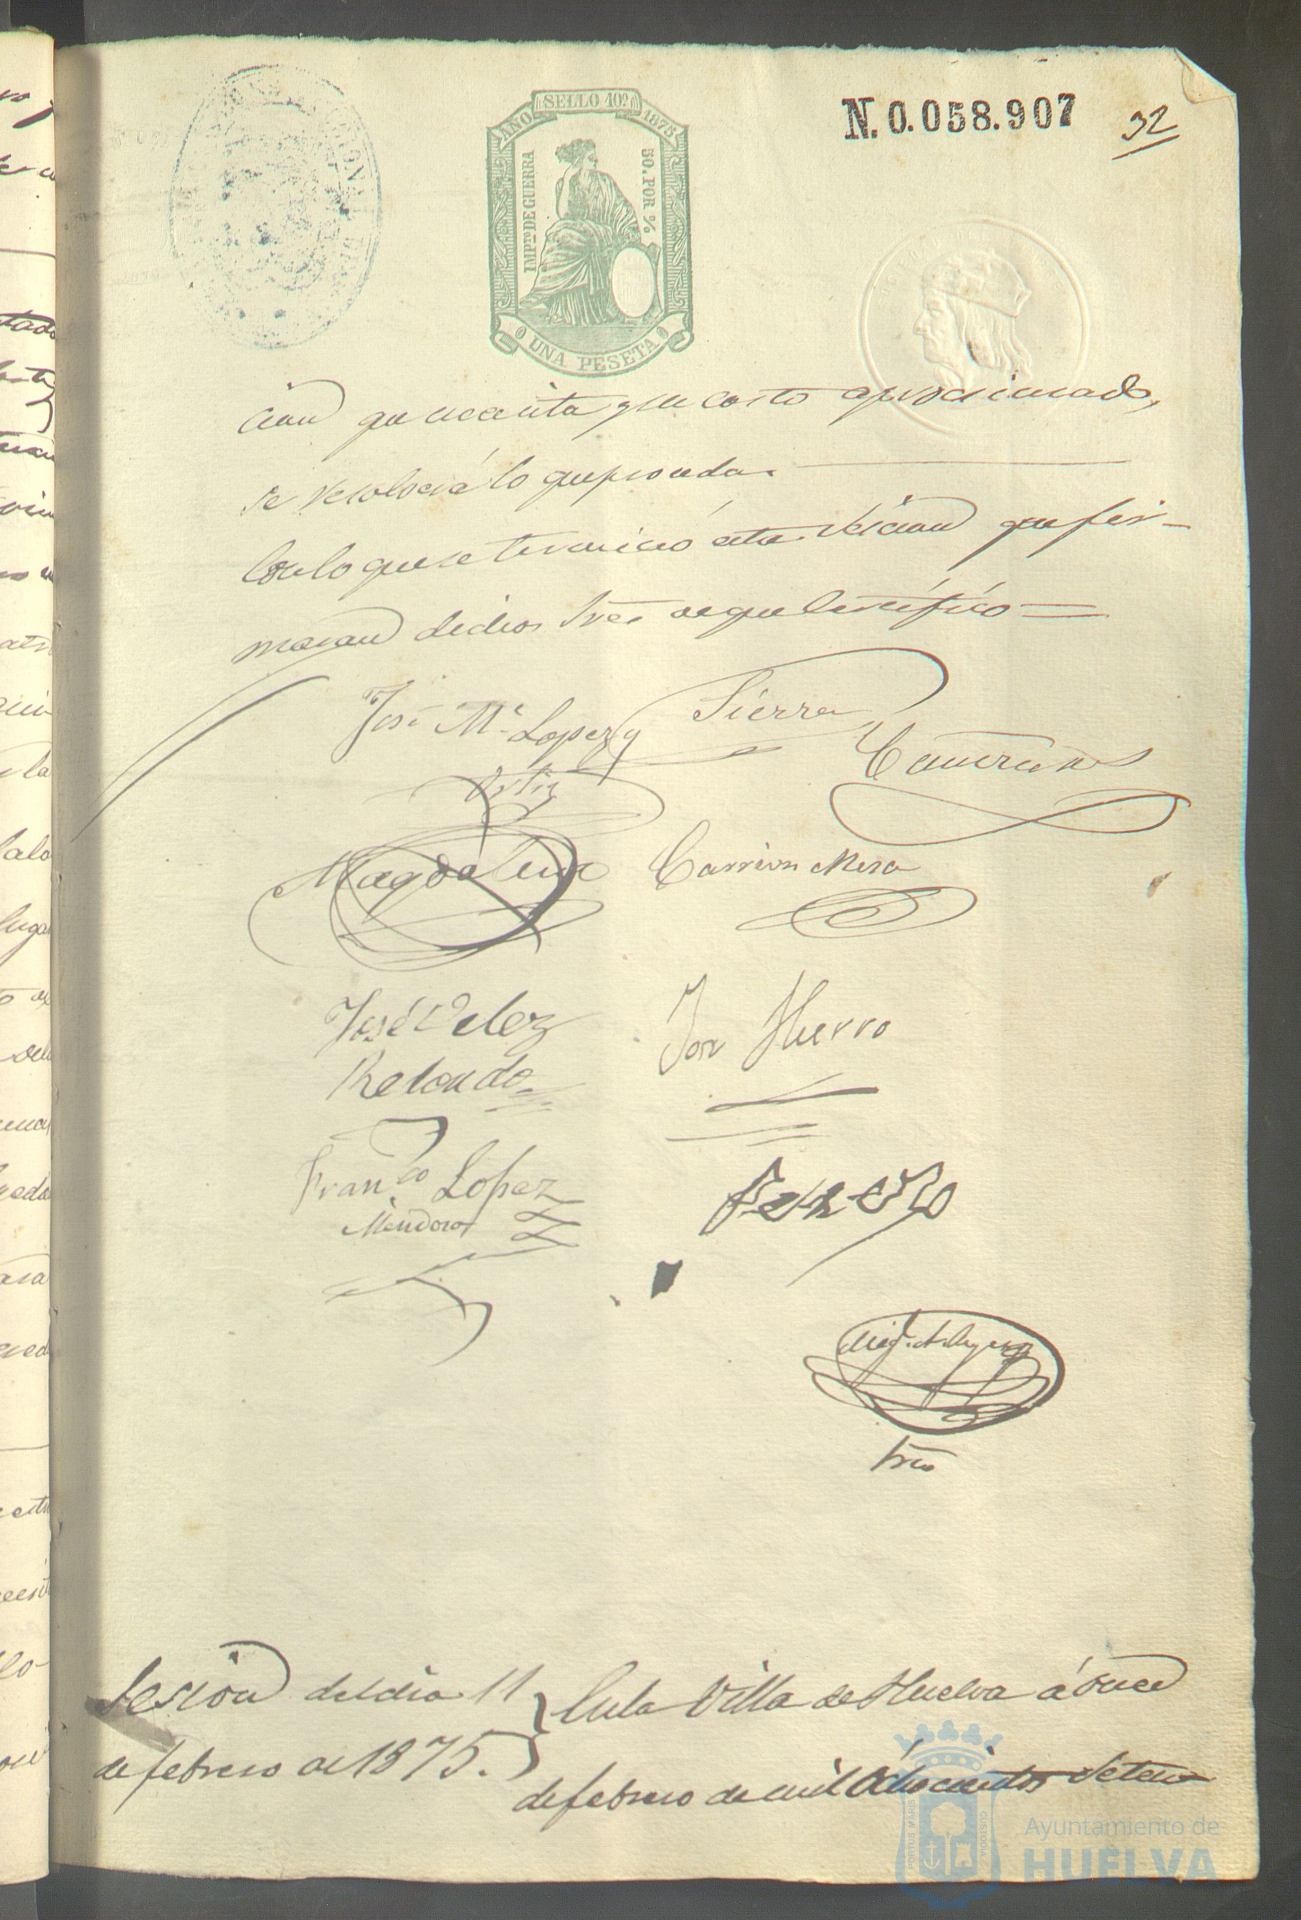 AÑO SELLO 10º 1875
IMPTO DE GUERRA
50. POR %
UNA PESETA
N. 0.058.907
32
cion que necesita y su costo aprocsimado,
se resolverá lo que proceda.
Con lo que se terminó esta sesion que fir-
maran dichos Sres de que Certifico =
José Mª Lopez y Sierra
Ortiz
Camerano
Magdalena Carrion Mesa
José Velez José Hierro
Redondo
Franco Lopez
Mendoza
Srio
Sesion del dia 11
de febrero de 1875.
En la Villa de Huelva á once
de febrero de mil Ochocientos Seten
PORTUS MARIS
CUSTODIA
Ayuntamiento de
HUELVA